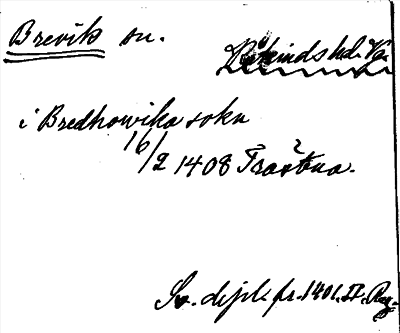 Brevik sn. Kåkinds hd. Vg.
i Bredhowika sokn
16/2 1408 Trastena.
Sv. dipl. fr. 1401. II. Reg.